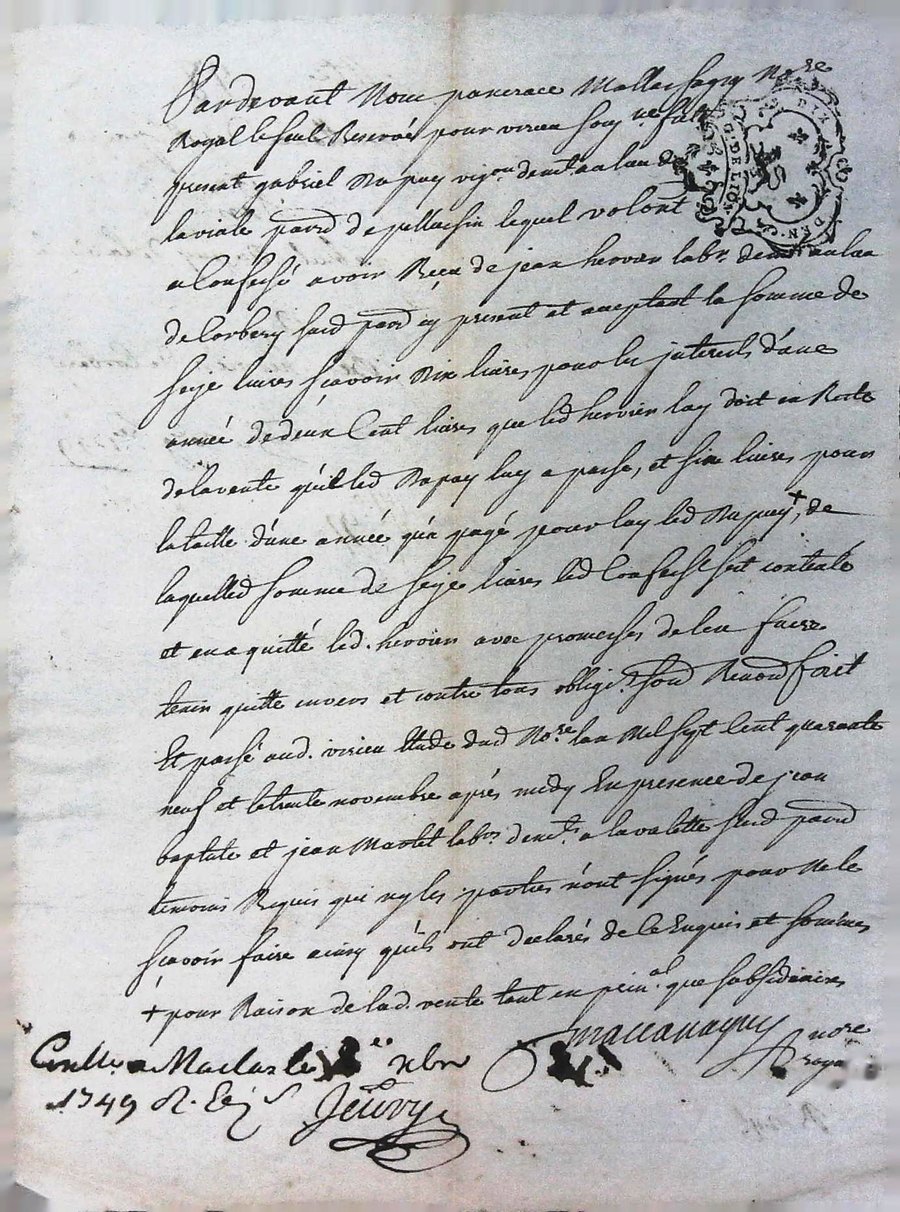 Pardevant Nous pancrace Mallassagny No.re
Royal le seul Reservé pour virieu souz.ne fut
present gabriel Dupuy vigon demt au lieu de
la viale parr.d de pellussin lequel volont
a Confessé avoir Reçu de jean hervier labr. demt au lieu
de Corbery sud parr.d cy present et acceptant la somme de
seize livres sçavoir Dix livres pour les jnterests d'une
année de deux Cent livres que led hervier luy doit en Reste
de la vente qu'il led Dupuy luy a passé, et six livres pour
la taille d'une année qu'a payé pour luy led Dupuy +, de
laquelled somme de seize livres led Confess.t s'est contenté
et en a quitté led. hervier avec promesses de l'en faire
tenir quitte envers et contre tous oblig.t soud Renond fait
Et passé aud. virieu Etude dud No.re l'an Mil sept Cent quarante
neuf et le trente novembre après midy En presence de jean
baptiste et jean Mastel labrs. demt. a la valette sud parr.d
temoins Requis qui ny les parties n'ont signés pour ne le
sçavoir faire ainsy qu'ils ont declarés de ce Enquis et sommés
+ pour Raison de lad. vente tant en prin.al que subsidiaires
nore
roya
Conllé a Maclas le xbre
1749 R.
G. DE LION